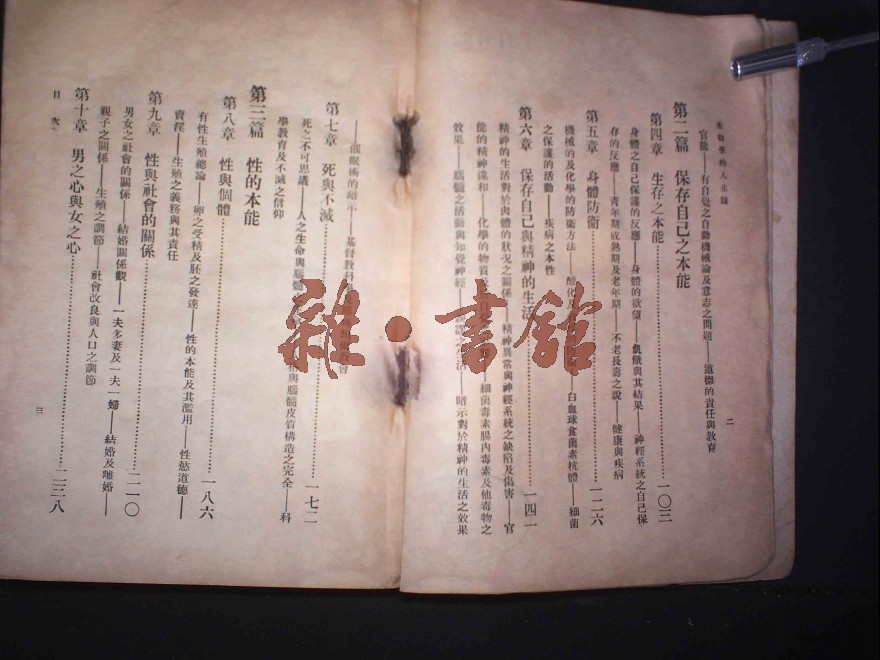 生物學的人生觀
二
官能——有自覺之自動機械論及意志之問題——道德的責任與教育
第二篇 保存自己之本能
第四章 生存之本能 一〇三
身體之自己保護的反應——身體的欲望——飢餓與其結果——神經系統之自己保
存的反應——青年期成熟期及老年期——不老長壽之說——健康與疾病
第五章 身體防衛 一二六
機械的及化學的防衛方法——白血球食菌素抗體——細菌
之保護的活動——疾病之本性
第六章 保存自己與精神的生活 一四一
精神的生活對於肉體的狀況之關係——精神異常與神經系統之缺陷及傷害——官
能的精神違和——化學的物質 細菌毒素腸內毒素及他毒物之
效果——腦髓之活動與知覺神經——暗示對於精神的生活之效果
——催眠術的暗示——基督教
第七章 死與不滅 一七二
死之不可思議——人之生命與腦髓 與腦髓皮質構造之完全——科
學教育及不滅之信仰
第三篇 性的本能
第八章 性與個體 一八六
有性生殖總論——卵之受精及胚之發達——性的本能及其濫用——性慾道德——
賣淫——生殖之義務與其責任
第九章 性與社會的關係 二一〇
男女之社會的關係——結婚關係觀——一夫多妻及一夫一婦——結婚及離婚——
親子之關係——生殖之調節——社會改良與人口之調節
第十章 男之心與女之心 二三八
目次
三
雜·書館